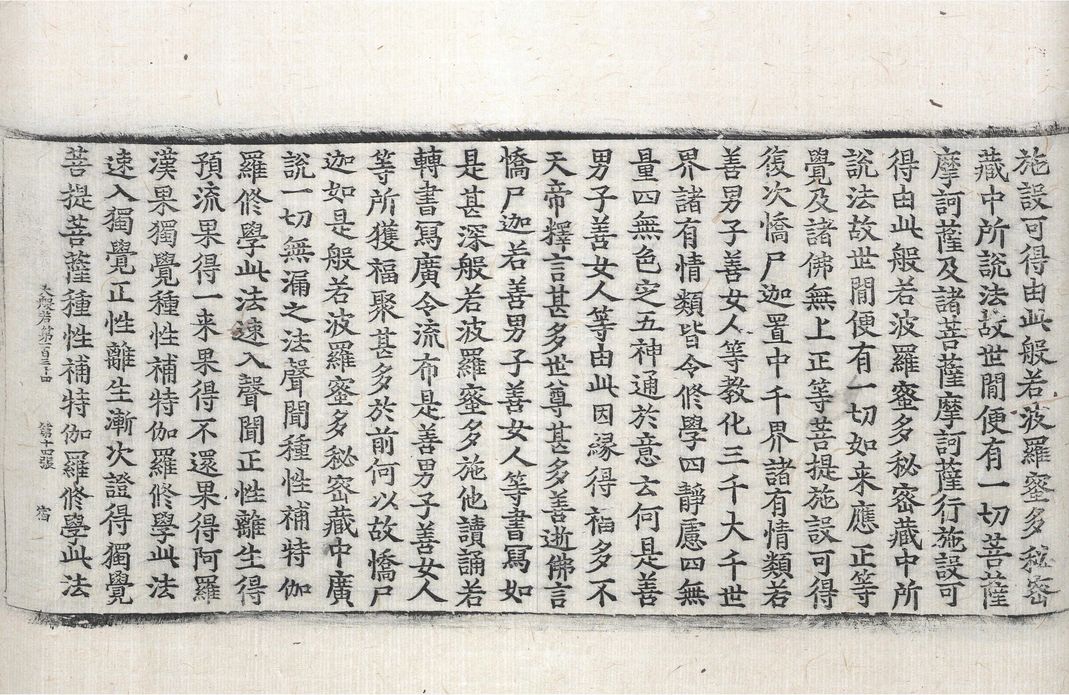 施設可得由此般若波羅蜜多秘密
藏中所說法故世間便有一切菩薩
摩訶薩及諸菩薩摩訶薩行施設可
得由此般若波羅蜜多秘密藏中所
說法故世間便有一切如来應正等
覺及諸佛無上正等菩提施設可得
復次憍尸迦置中千界諸有情類若
善男子善女人等教化三千大千世
界諸有情類皆令修學四靜慮四無
量四無色定五神通於意云何是善
男子善女人等由此因緣得福多不
天帝釋言甚多世尊甚多善逝佛言
憍尸迦若善男子善女人等書寫如
是甚深般若波羅蜜多施他讀誦若
轉書寫廣令流布是善男子善女人
等所獲福聚甚多於前何以故憍尸
迦如是般若波羅蜜多秘密藏中廣
說一切無漏之法聲聞種性補特伽
羅修學此法速入聲聞正性離生得
預流果得一来果得不還果得阿羅
漢果獨覺種性補特伽羅修學此法
速入獨覺正性離生漸次證得獨覺
菩提菩薩種性補特伽羅修學此法
大般若第百三十四 第十四張 宿